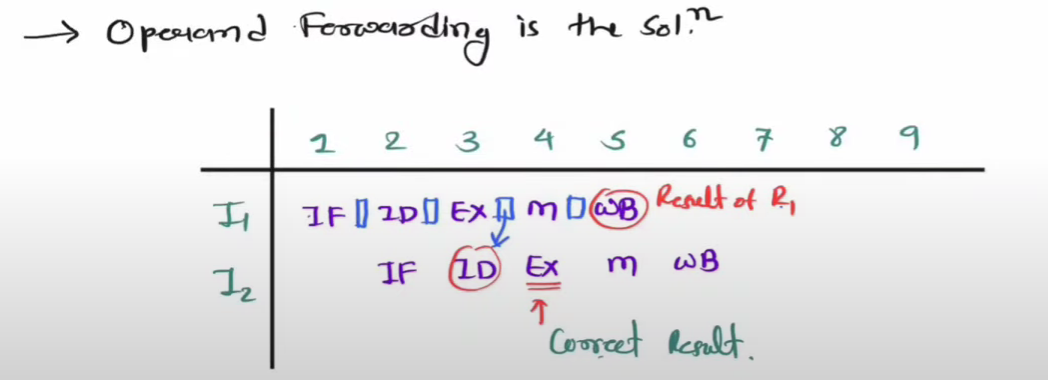 → Operand Forwarding is the Sol.ⁿ
1 2 3 4 5 6 7 8 9
I₁ IF ID EX M WB Result of R₁
I₂ IF ID EX M WB
Correct Result.